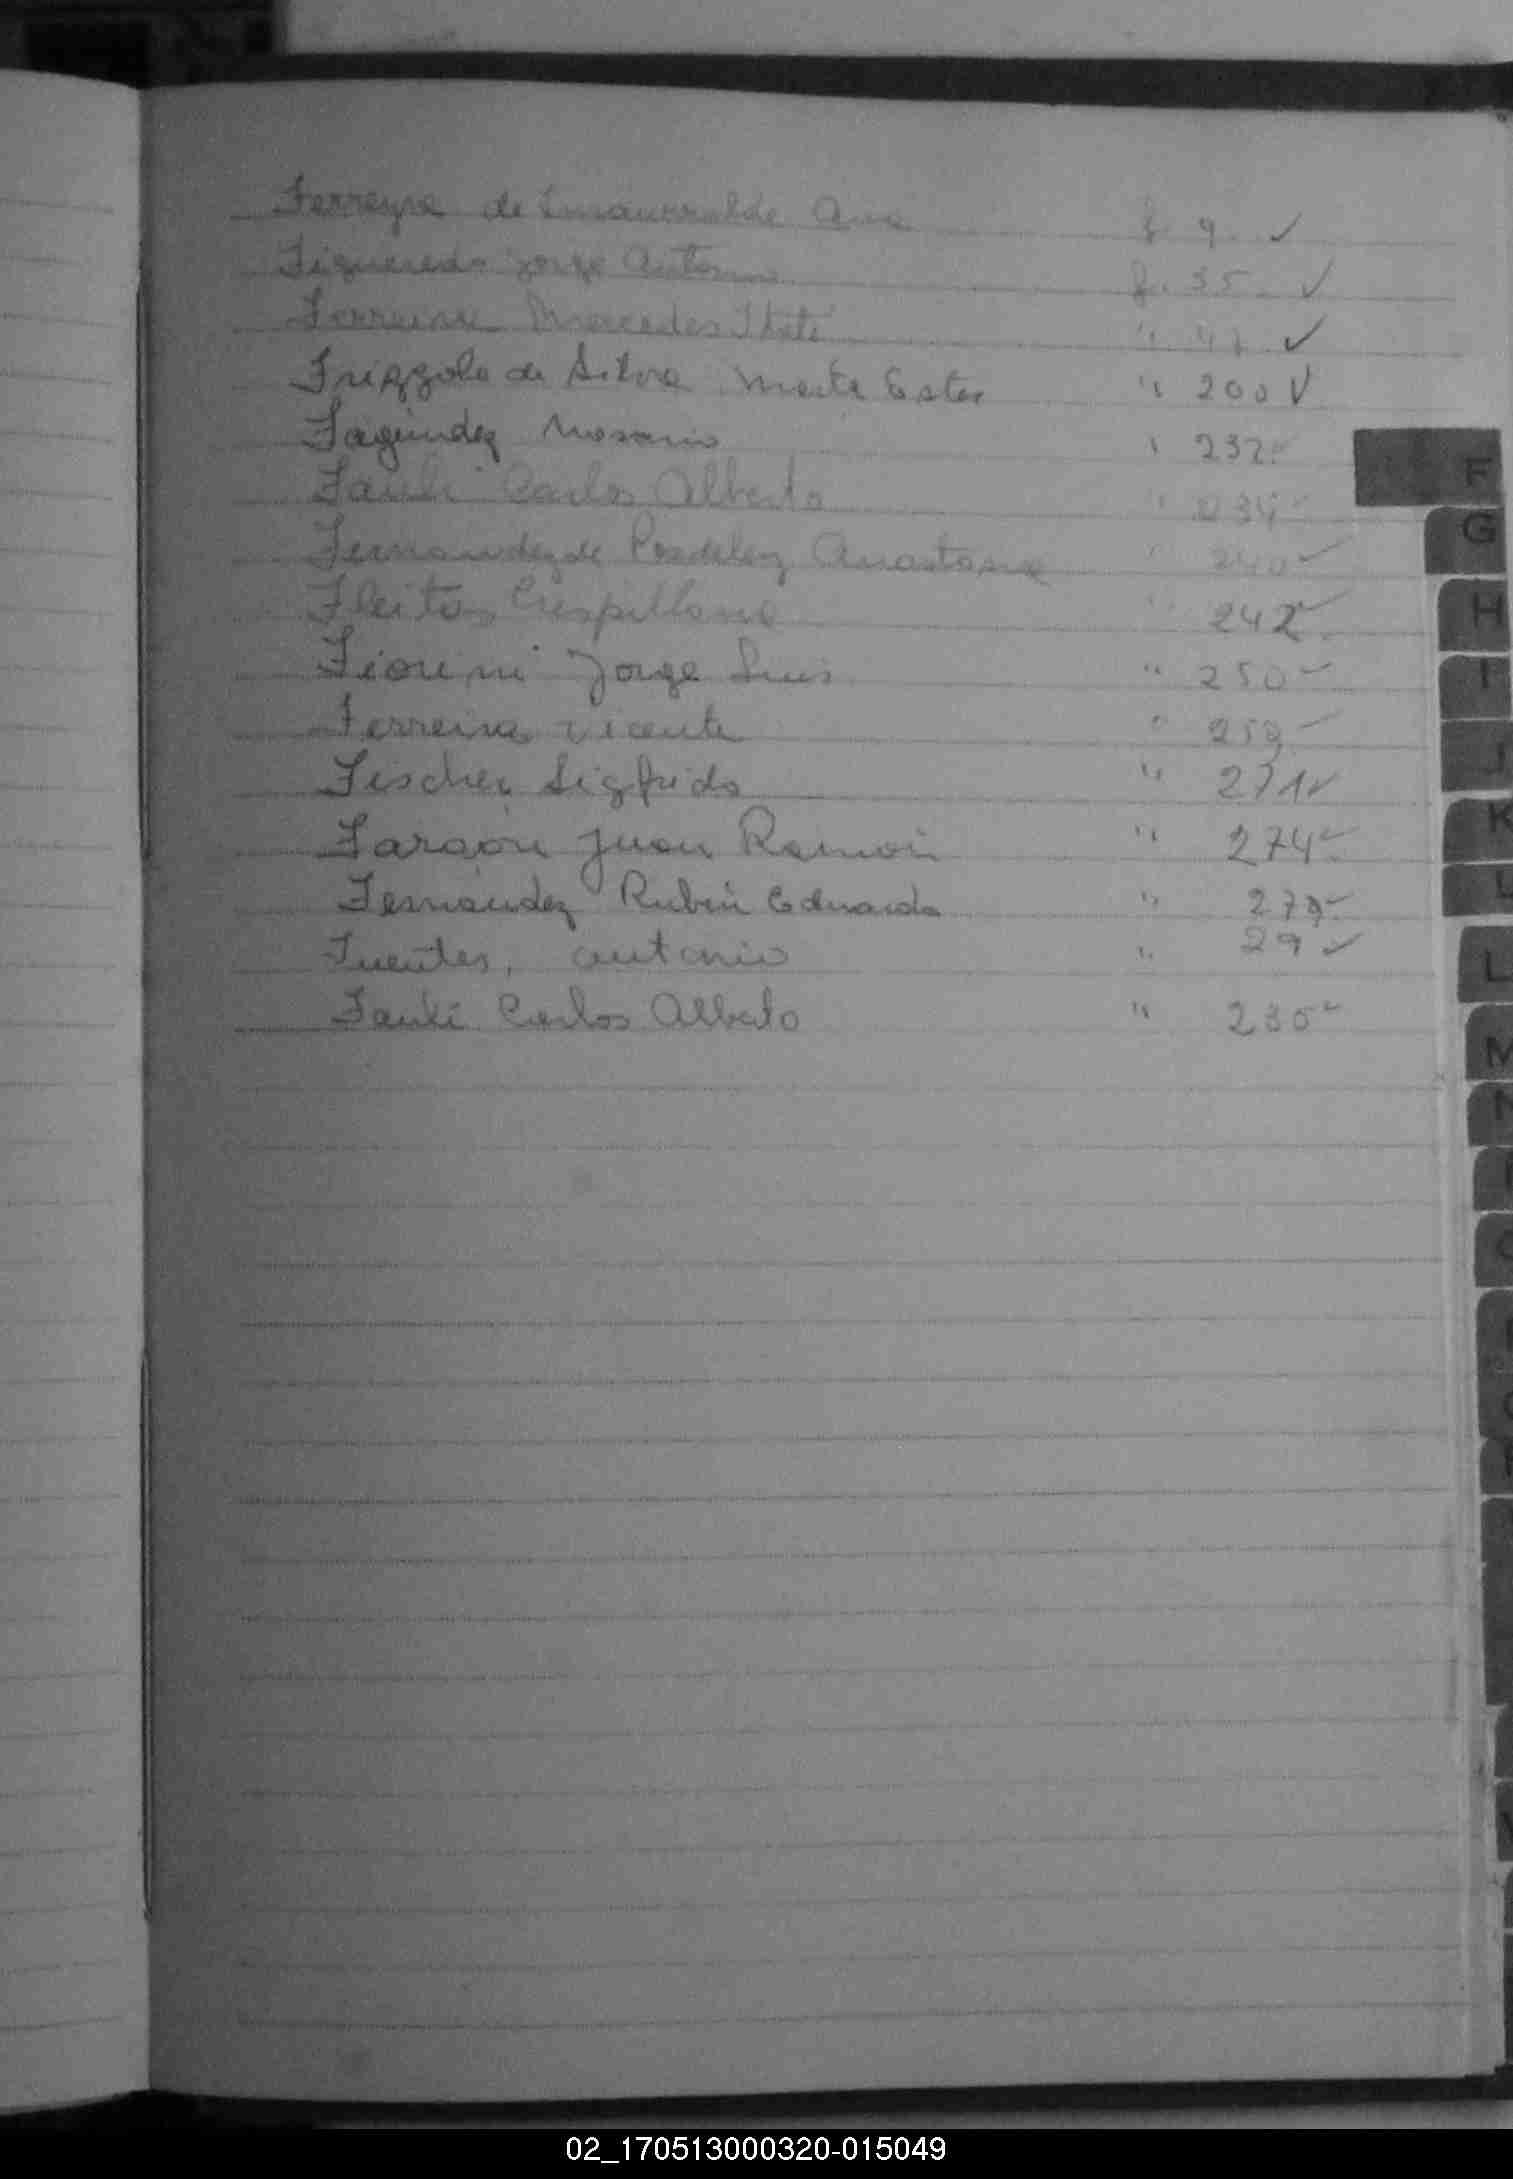 Ferreyra de Insaurralde Ana f. 9 ✓
Figueredo Jorge Antonio f. 35 ✓
Ferreira Mercedes " 47 ✓
Frizzola de Silva Marta Ester " 200 ✓
Fagúndez Rosario " 232 ✓
Fauki Carlos Alberto " 234 ✓
Fernandez de Anastasia " 240 ✓
Fleitas Crespillana " 242 ✓
Fiorini Jorge Luis " 250 ✓
Ferreira Vicente " ✓
Fischer Sigfrido " 271 ✓
Farcon Juan Ramón " 274 ✓
Fernández Rubén Eduardo " 279 ✓
Fuentes, Antonio " 29 ✓
Fauki Carlos Alberto " 235 ✓
F
G
H
I
J
K
L
L
M
N
02_170513000320-015049